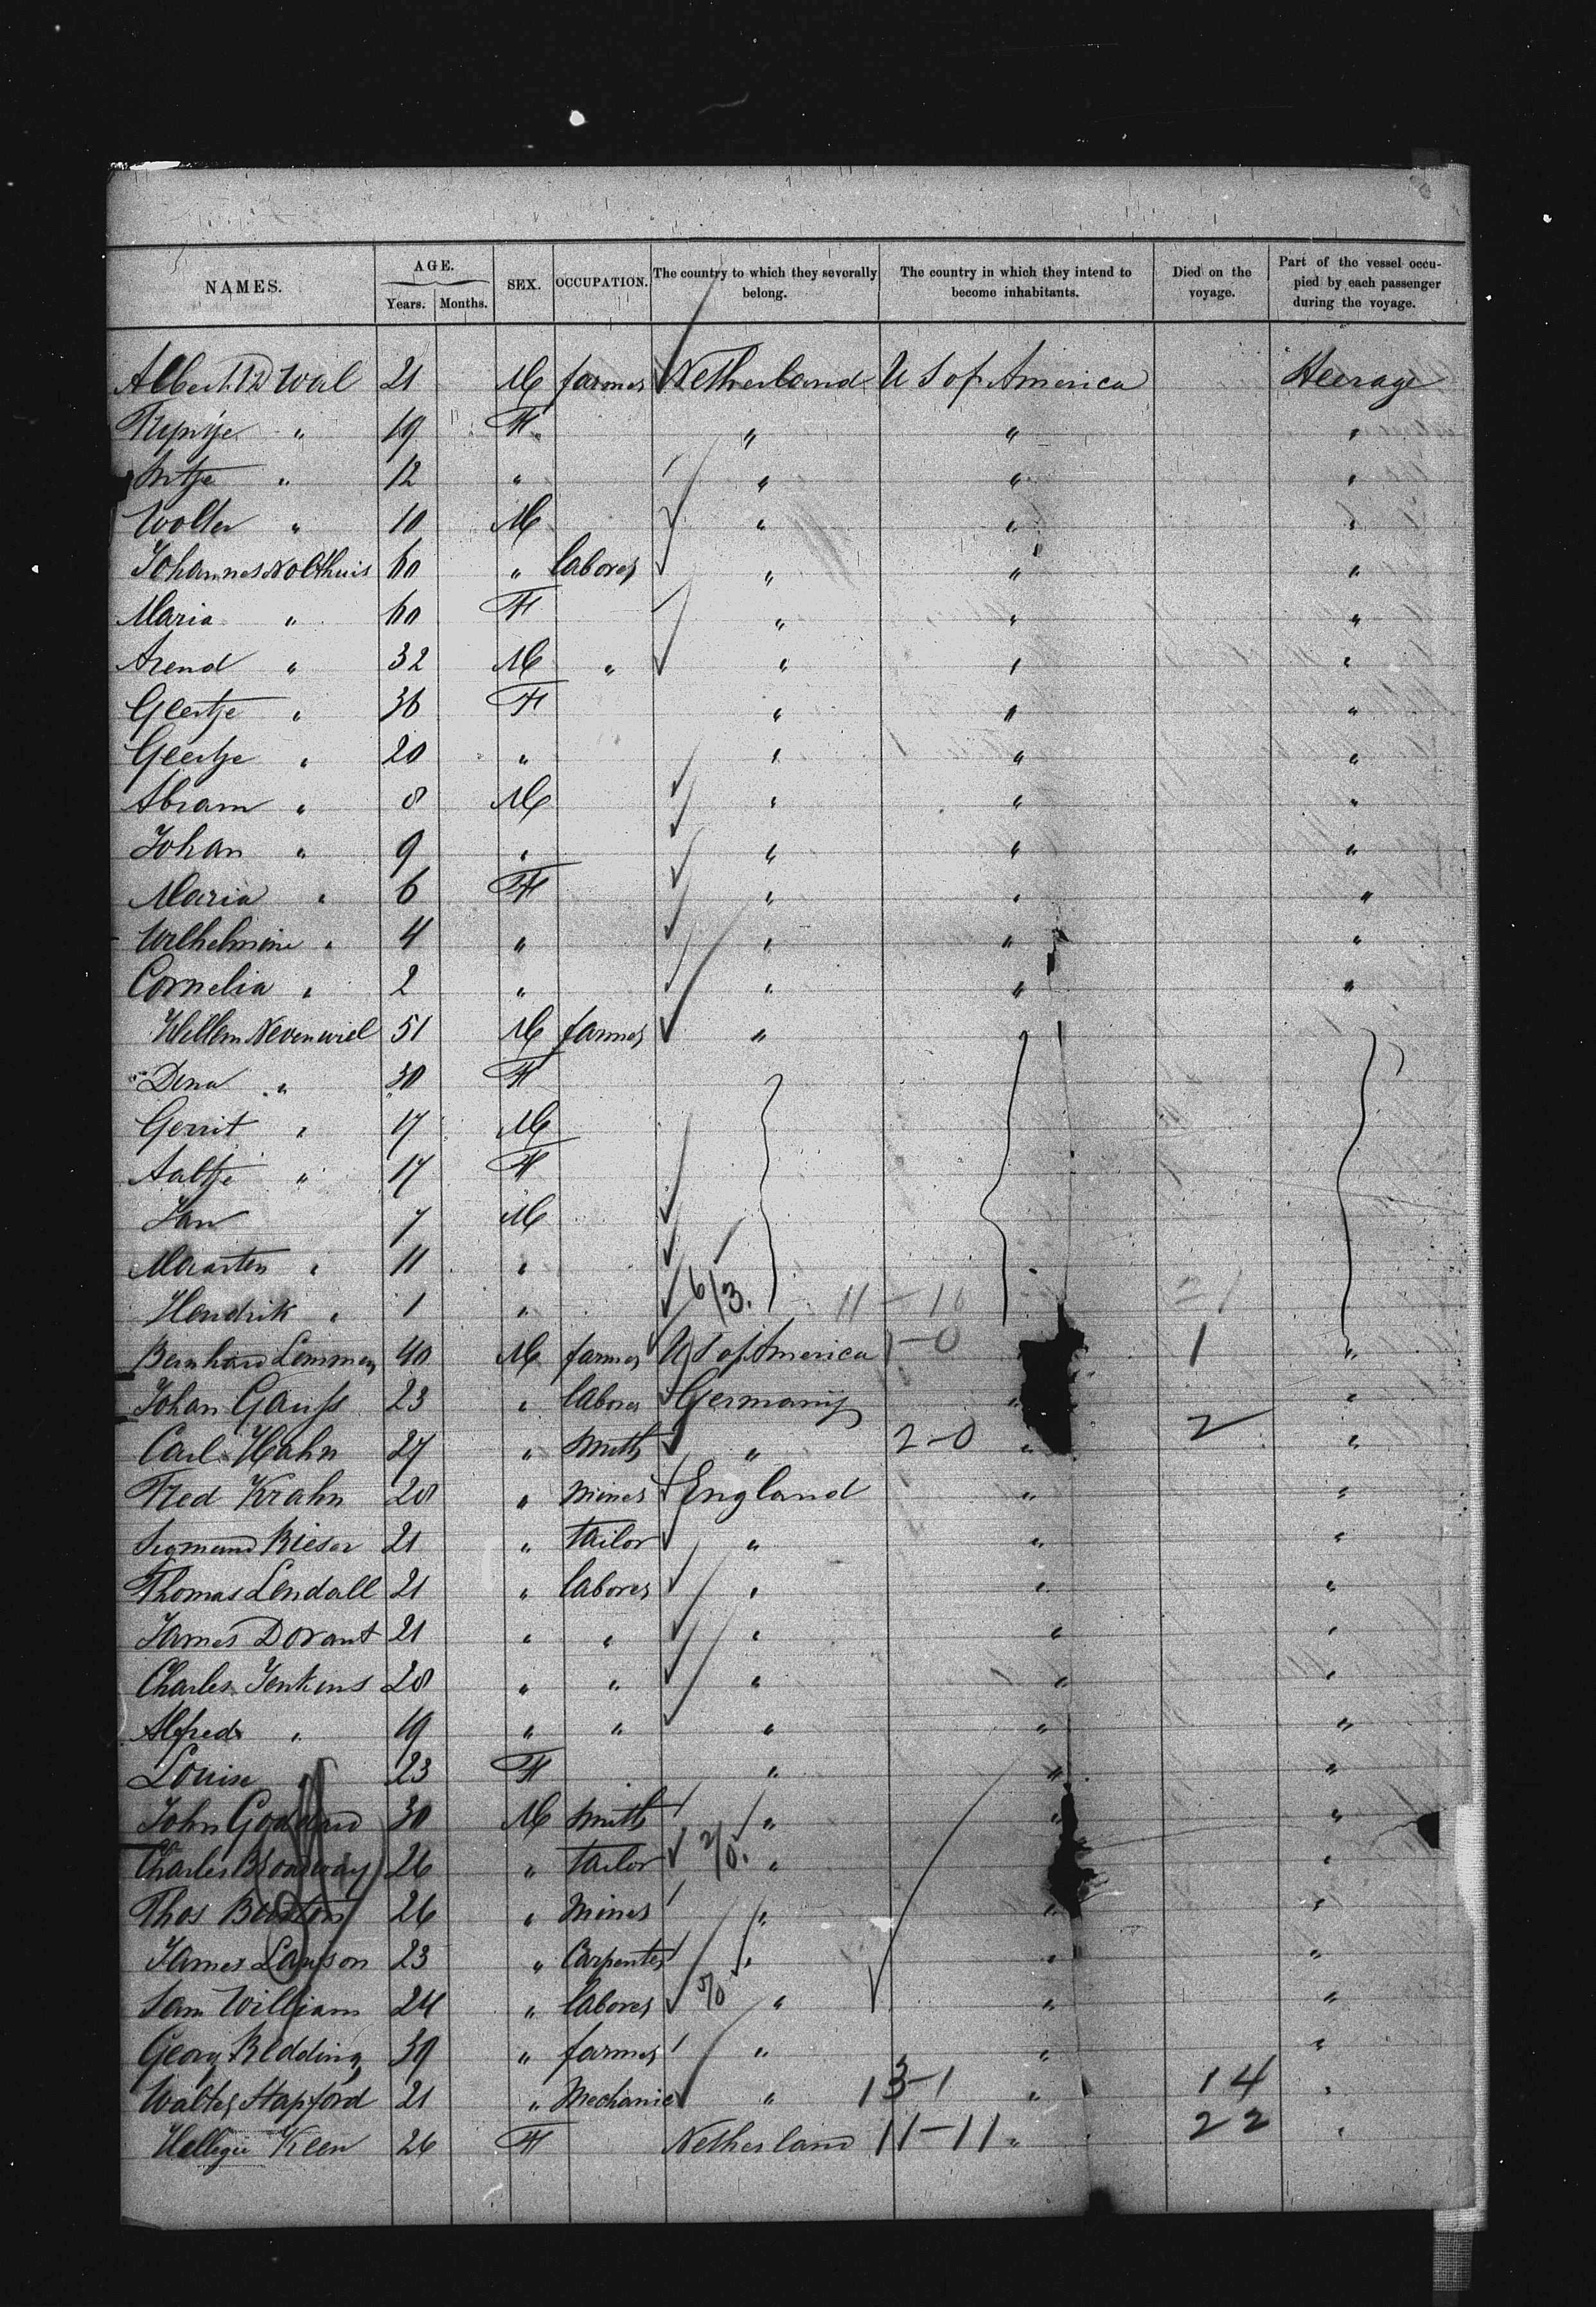 NAMES. AGE. Years. Months. SEX. OCCUPATION. The country to which they severally belong. The country in which they intend to become inhabitants. Died on the voyage. Part of the vessel occupied by each passenger during the voyage.
Albert D Wal 21 M farmer Netherland U S of America Steerage
" 19 F " " "
Antje " 12 " " " "
Wolter " 10 M " " "
Johannes Nolthuis 60 " laborer " " "
Maria " 60 F " " "
Arend " 32 M " " " "
Geertje " 36 F " " "
Geertje " 20 " " " "
Abram " 8 M " " "
Johan " 9 " " " "
Maria " 6 F " " "
Wilhelmine " 4 " " " "
Cornelia " 2 " " " "
Willem Nevenwiel 51 M farmer "
Dena " 30 F
Gerrit " 17 M
Aaltje " 17 F
Jan 7 M
Maarten " 11 "
Hendrik " 1 " 6/3. 11-10 21
Bernhard Lemmen 40 M farmer U S of America 1-0 1 "
Johan Gauss 23 " laborer Germany " "
Carl Hahn 27 " smith " 2-0 " 2 "
Fred Krahn 28 " miner England " "
Sigmund Rieser 21 " tailor " " "
Thomas Lendall 21 " laborer " " "
James Dorant 21 " " " " "
Charles Jenkins 28 " " " " "
Alfred " 19 " " " " "
Louise " 23 F " " "
John Goddard 30 M smith " " "
Charles Broadway 26 " tailor 2/0. " "
Thos Burton 26 " miner " " "
James Lawson 23 " Carpenter " " "
Sam William 24 " laborer 5/0 " " "
Georg Redding 39 " farmer " " "
Walter Stapford 21 " Mechanic " 13-1 " 14 "
Keen 26 F Netherland 11-11 " 22 "